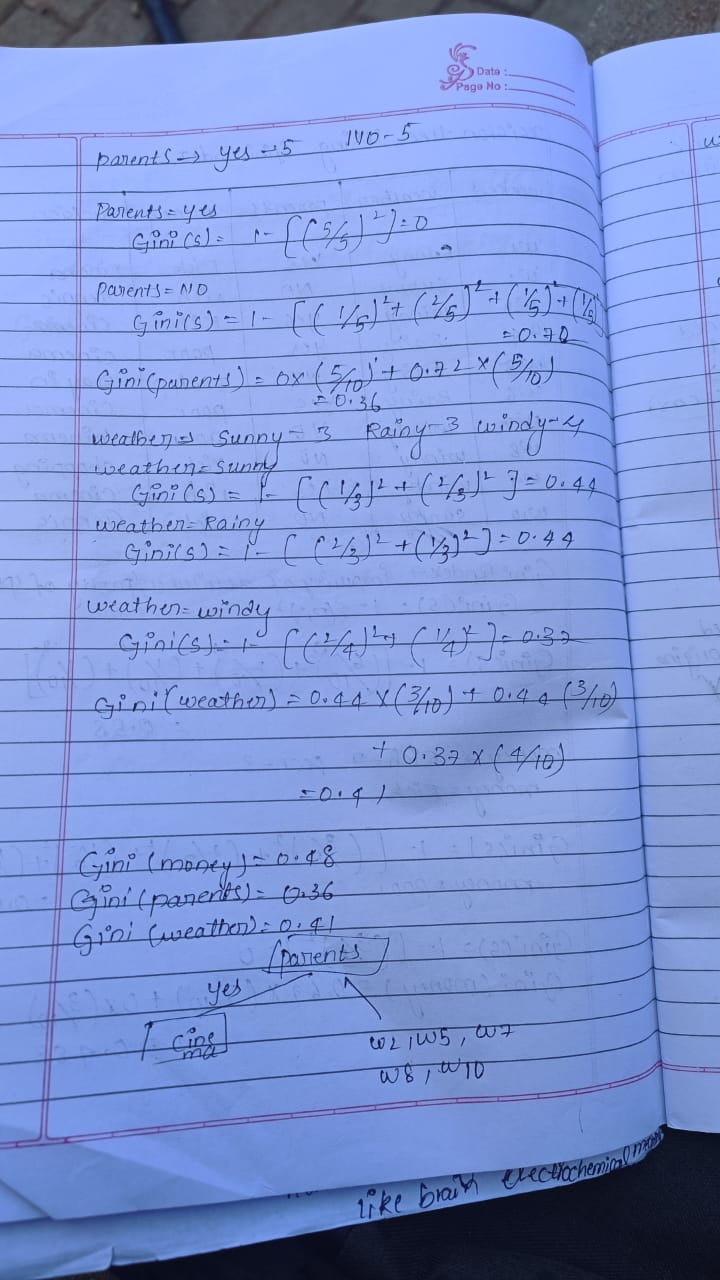 Date :
Page No :
parents => yes → 5 NO - 5
Parents = yes
Gini (s) = 1 - [(5/5)²] = 0
Parents = NO
Gini (s) = 1 - [(1/5)² + (2/5)² + (1/5)² + (1/5)
= 0.72
Gini (parents) = 0x (5/10) + 0.72 x (5/10)
= 0.36
weather => Sunny - 3 Rainy - 3 windy - 4
weather = Sunny
Gini (s) = 1 - [(1/3)² + (2/3)²] = 0.44
weather = Rainy
Gini (s) = 1 - [(2/3)² + (1/3)²] = 0.44
weather = windy
Gini (s) = 1 - [(2/4)² + (1/4)²] = 0.37
Gini (weather) = 0.44 x (3/10) + 0.44 (3/10)
+ 0.37 x (4/10)
= 0.41
Gini (money) = 0.48
Gini (parents) = 0.36
Gini (weather) = 0.41
parents
yes
cine
ma
w2, w5, w7
w8, w10
like brain electrochemical